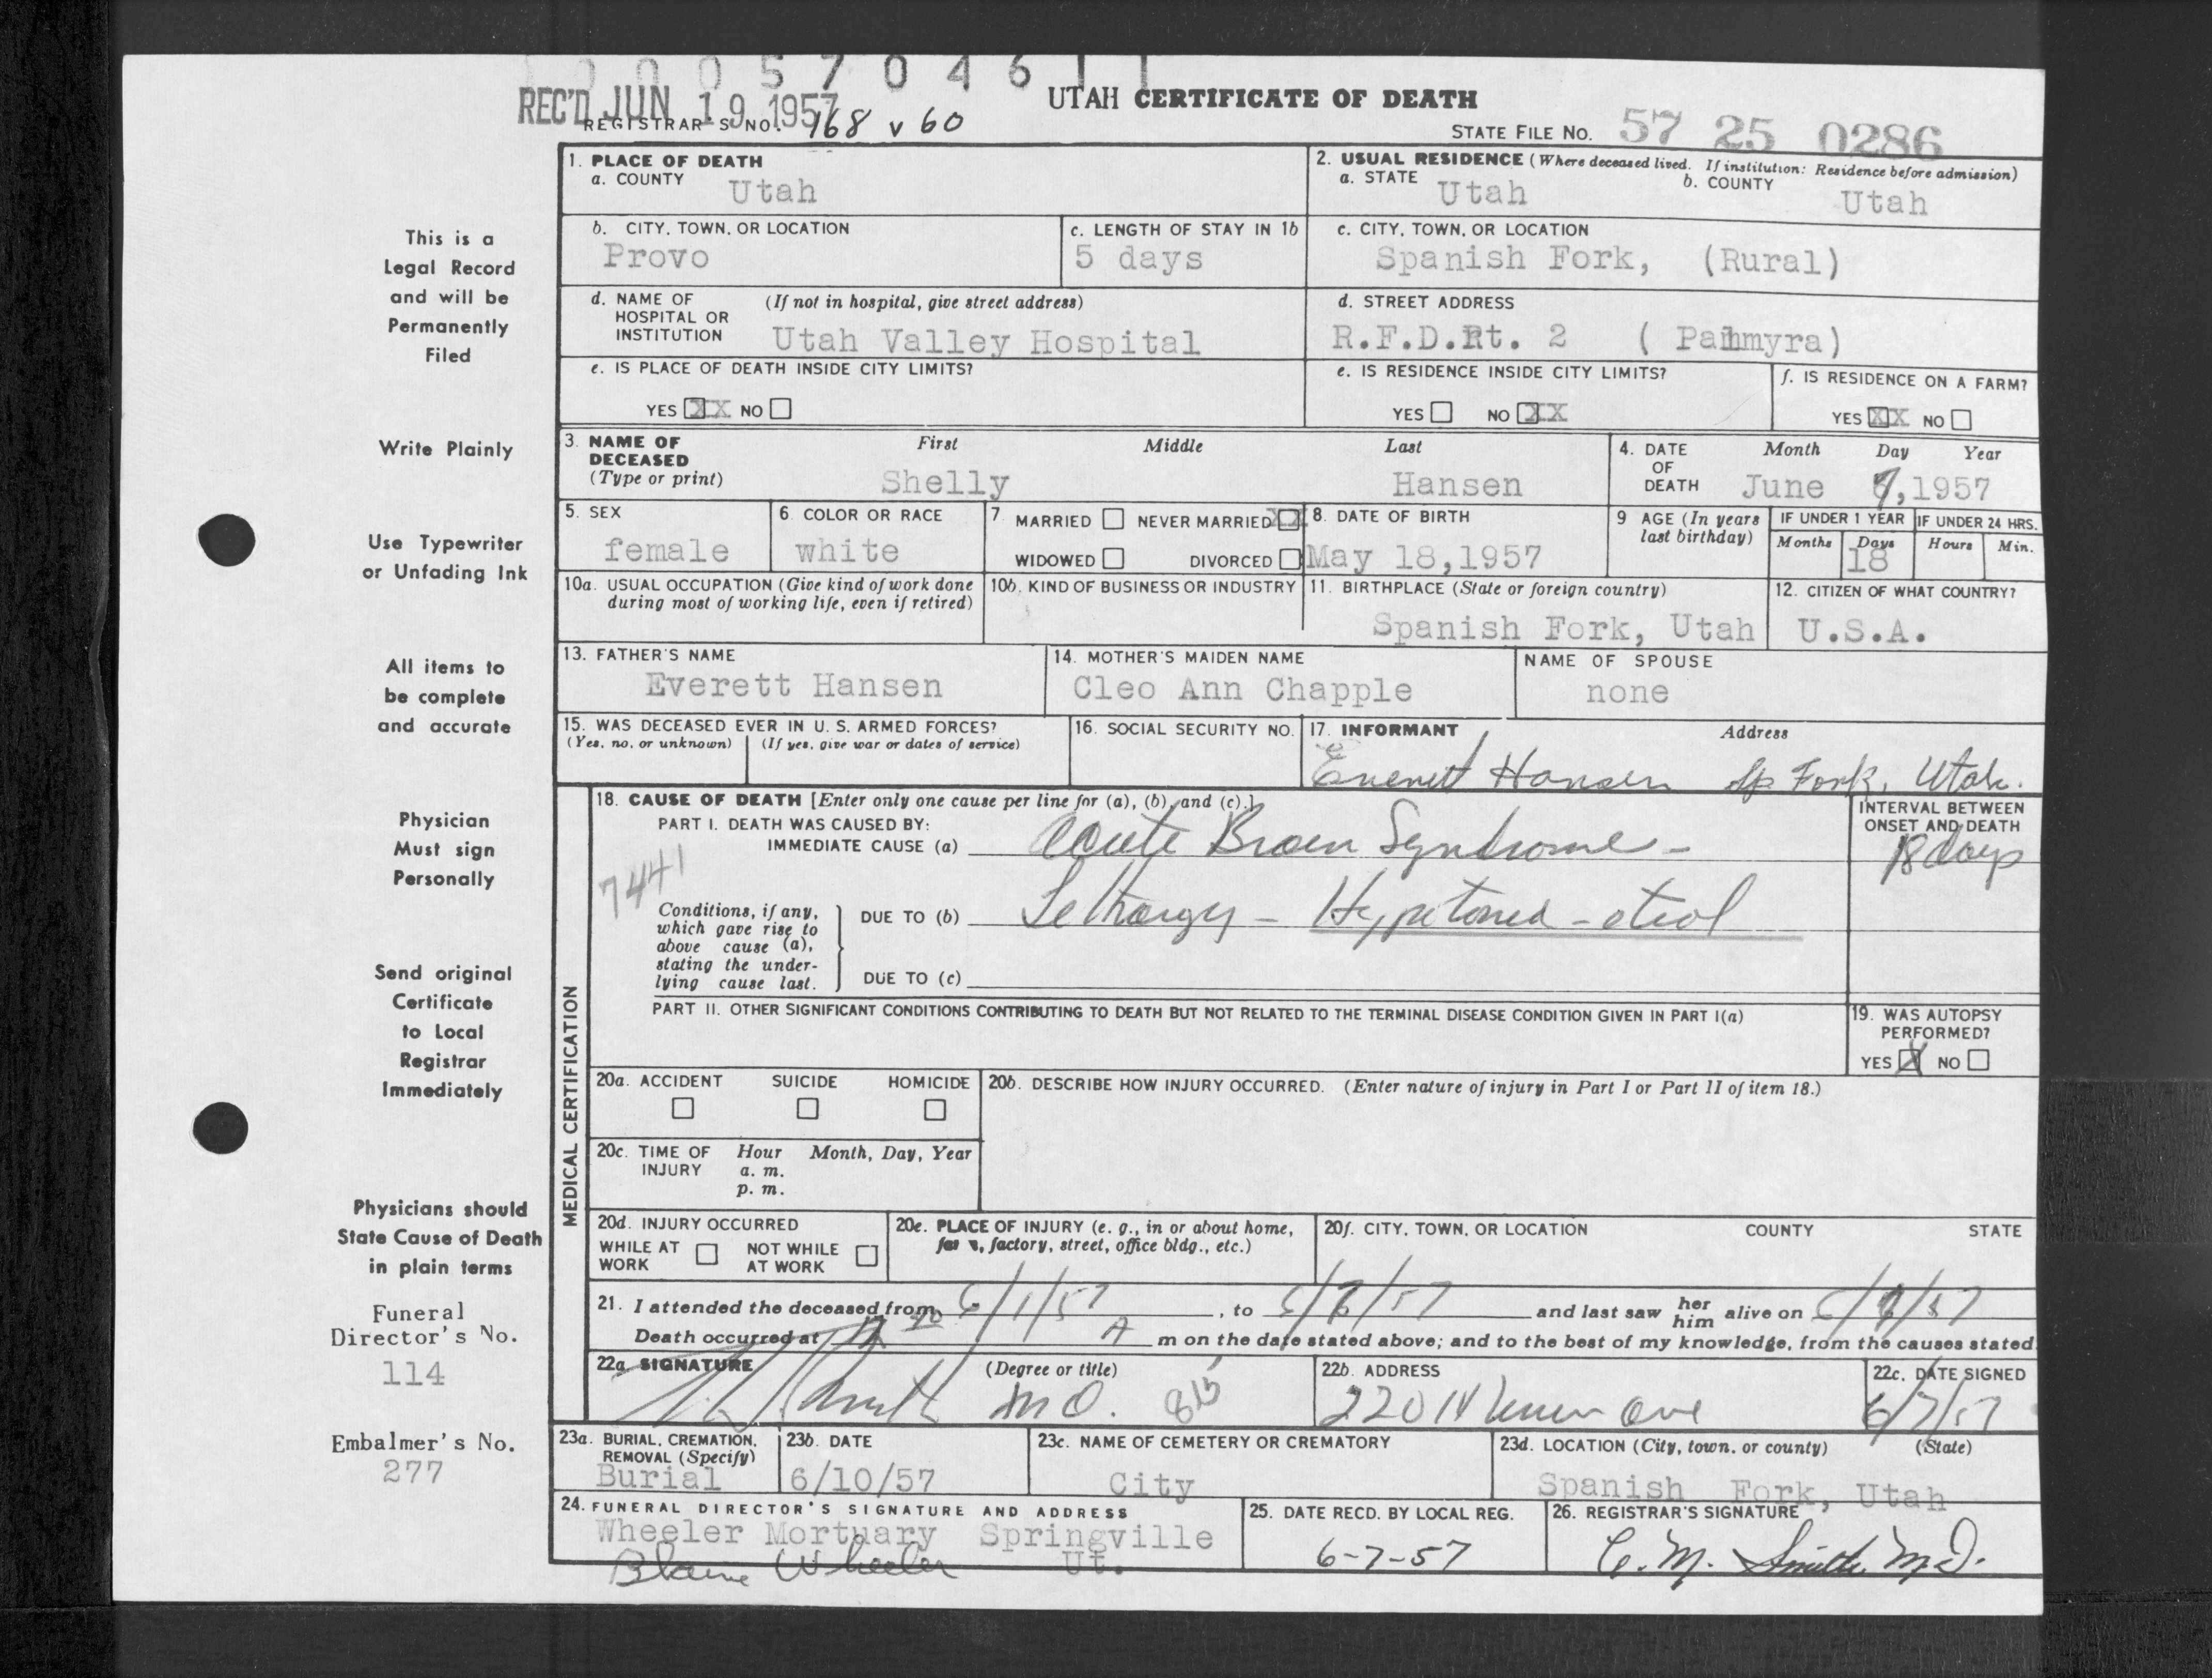 0005704611
REC'D JUN 19 1957
UTAH CERTIFICATE OF DEATH
REGISTRAR'S NO. 168 v 60
STATE FILE NO. 57 25 0286
1. PLACE OF DEATH
a. COUNTY Utah
2. USUAL RESIDENCE (Where deceased lived. If institution: Residence before admission)
a. STATE Utah b. COUNTY Utah
b. CITY, TOWN, OR LOCATION Provo
c. LENGTH OF STAY IN 1b 5 days
c. CITY, TOWN, OR LOCATION Spanish Fork, (Rural)
d. NAME OF HOSPITAL OR INSTITUTION (If not in hospital, give street address) Utah Valley Hospital
d. STREET ADDRESS R.F.D.Rt. 2 ( Palmyra)
e. IS PLACE OF DEATH INSIDE CITY LIMITS?
YES XX NO
e. IS RESIDENCE INSIDE CITY LIMITS?
YES NO XX
f. IS RESIDENCE ON A FARM?
YES XX NO
3. NAME OF DECEASED (Type or print) First Middle Last
Shelly Hansen
4. DATE OF DEATH Month Day Year
June 7, 1957
5. SEX female
6. COLOR OR RACE white
7. MARRIED NEVER MARRIED XX
WIDOWED DIVORCED
8. DATE OF BIRTH May 18,1957
9 AGE (In years last birthday)
IF UNDER 1 YEAR Months Days 18
IF UNDER 24 HRS. Hours Min.
10a. USUAL OCCUPATION (Give kind of work done during most of working life, even if retired)
10b. KIND OF BUSINESS OR INDUSTRY
11. BIRTHPLACE (State or foreign country) Spanish Fork, Utah
12. CITIZEN OF WHAT COUNTRY? U.S.A.
13. FATHER'S NAME Everett Hansen
14. MOTHER'S MAIDEN NAME Cleo Ann Chapple
NAME OF SPOUSE none
15. WAS DECEASED EVER IN U. S. ARMED FORCES?
(Yes, no, or unknown) (If yes, give war or dates of service)
16. SOCIAL SECURITY NO.
17. INFORMANT Address
Everett Hansen Sp Fork, Utah.
18. CAUSE OF DEATH [Enter only one cause per line for (a), (b), and (c).]
PART I. DEATH WAS CAUSED BY:
IMMEDIATE CAUSE (a) Acute Brain Syndrome -
INTERVAL BETWEEN ONSET AND DEATH
18 days
7441
Conditions, if any, which gave rise to above cause (a), stating the underlying cause last.
DUE TO (b) Lethargy -
DUE TO (c)
PART II. OTHER SIGNIFICANT CONDITIONS CONTRIBUTING TO DEATH BUT NOT RELATED TO THE TERMINAL DISEASE CONDITION GIVEN IN PART I(a)
19. WAS AUTOPSY PERFORMED?
YES X NO
MEDICAL CERTIFICATION
20a. ACCIDENT SUICIDE HOMICIDE
20b. DESCRIBE HOW INJURY OCCURRED. (Enter nature of injury in Part I or Part II of item 18.)
20c. TIME OF INJURY Hour Month, Day, Year
a. m.
p. m.
20d. INJURY OCCURRED
WHILE AT WORK NOT WHILE AT WORK
20e. PLACE OF INJURY (e. g., in or about home, farm, factory, street, office bldg., etc.)
20f. CITY, TOWN, OR LOCATION COUNTY STATE
21. I attended the deceased from 6/1/57, to 6/7/57 and last saw her him alive on 6/ /57
Death occurred at A m on the date stated above; and to the best of my knowledge, from the causes stated
22a SIGNATURE (Degree or title) MD.
22b. ADDRESS 220 N
22c. DATE SIGNED 6/7/57
23a. BURIAL, CREMATION, REMOVAL (Specify) Burial
23b. DATE 6/10/57
23c. NAME OF CEMETERY OR CREMATORY City
23d. LOCATION (City, town, or county) (State) Spanish Fork, Utah
24. FUNERAL DIRECTOR'S SIGNATURE AND ADDRESS
Wheeler Mortuary Springville Ut.
Blaine Wheeler
25. DATE RECD. BY LOCAL REG. 6-7-57
26. REGISTRAR'S SIGNATURE C. M. Smith, M.D.
This is a
Legal Record
and will be
Permanently
Filed
Write Plainly
Use Typewriter
or Unfading Ink
All items to
be complete
and accurate
Physician
Must sign
Personally
Send original
Certificate
to Local
Registrar
Immediately
Physicians should
State Cause of Death
in plain terms
Funeral
Director's No.
114
Embalmer's No.
277